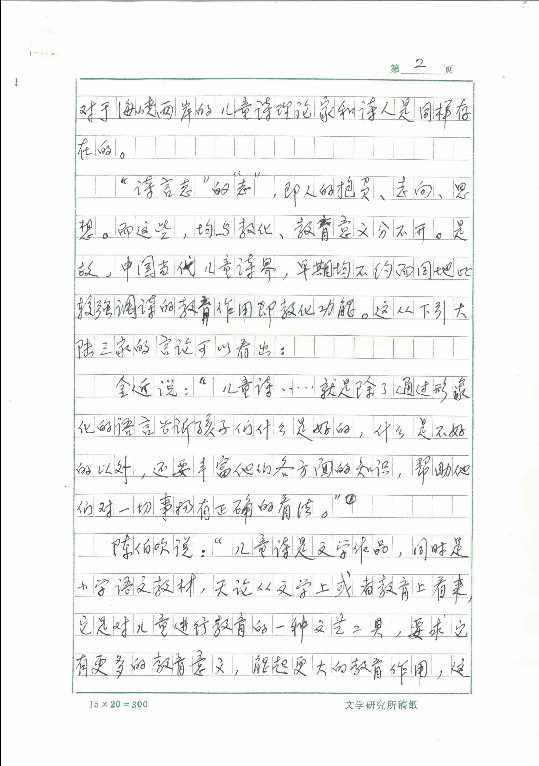 第 2 页
对于海峡两岸的儿童诗理论家和诗人是同样存
在的。
“诗言志”的“志”，即人的抱负、志向、思
想。而这些，均与教化、教育意义分不开。是
故，中国当代儿童诗界，早期均不约而同地比
较强调诗的教育作用即教化功能。这从下引大
陆三家的言论可以看出：
金近说：“儿童诗……就是除了通过形象
化的语言告诉孩子们什么是好的，什么是不好
的以外，还要丰富他们各方面的知识，帮助他
们对一切事物有正确的看法。”①
陈伯吹说：“儿童诗是文学作品，同时是
小学语文教材，无论从文学上或者教育上看来，
它是对儿童进行教育的一种文艺工具，要求它
有更多的教育意义，能起更大的教育作用，这
15×20=300
文学研究所稿纸